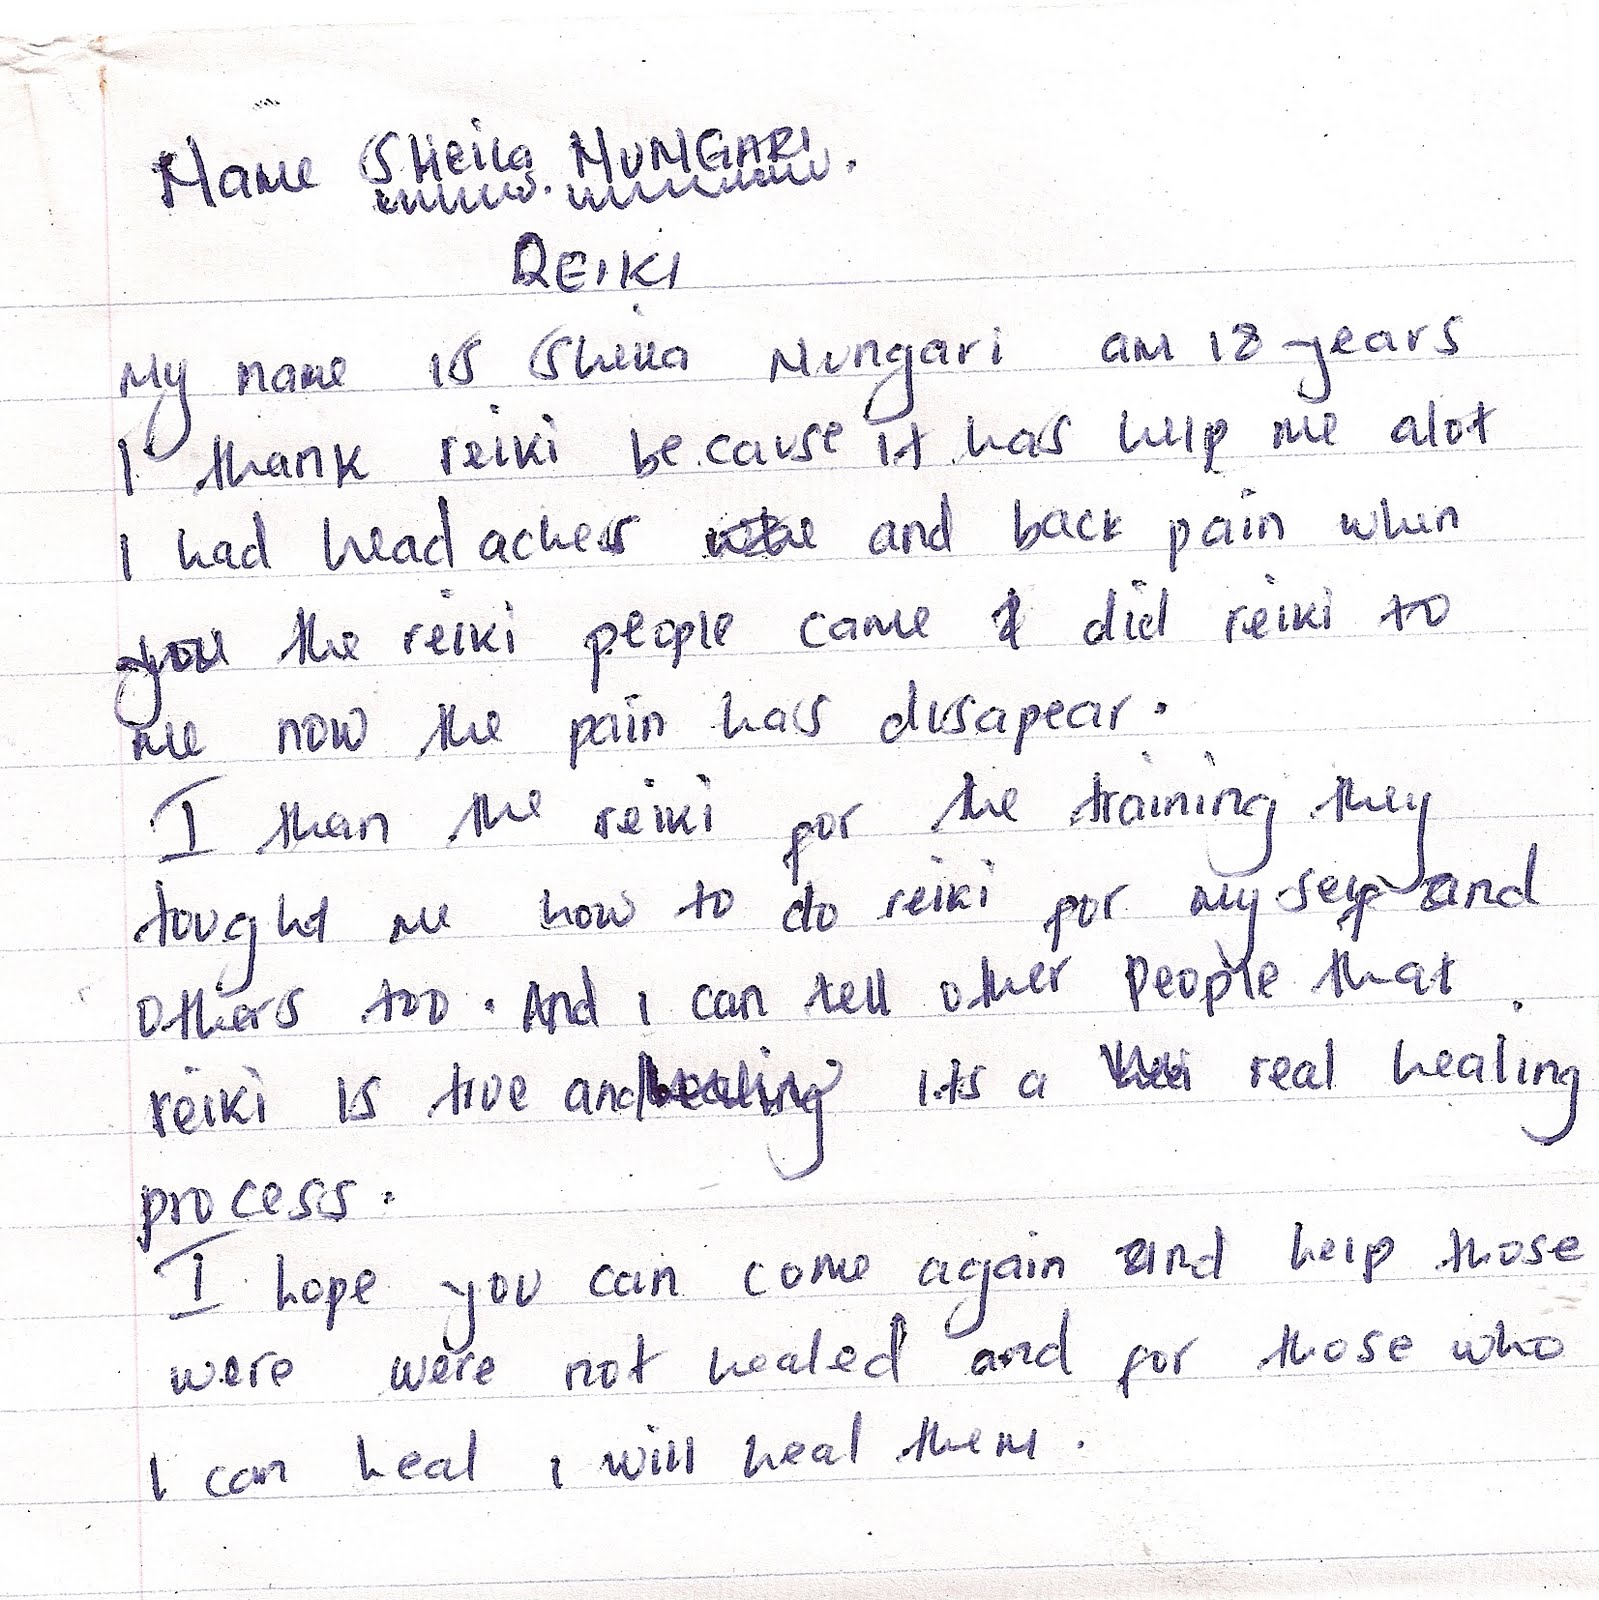 Name Sheila MUNGARI.
REIKI
My name is Sheila Mungari am 18 years
I thank reiki because it has help me alot
I had head aches and back pain when
you the reiki people came & did reiki to
me now the pain has disapear.
I than the reiki for the training they
tought me how to do reiki for my self and
others too. And I can tell other people that
reiki is true and healing its a real healing
process.
I hope you can come again and help those
were were not healed and for those who
I can heal I will heal them.